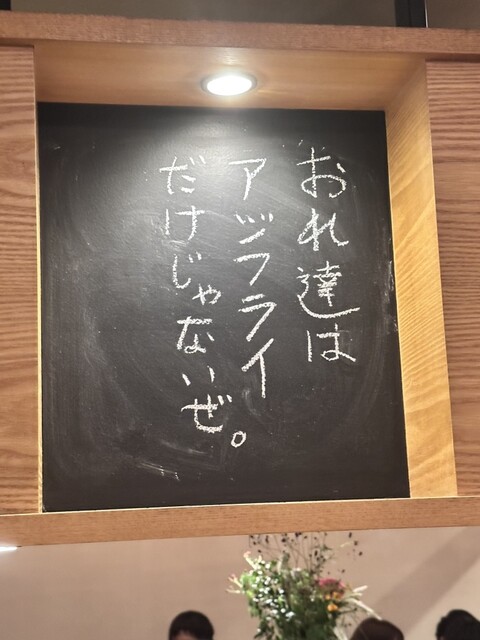 おれ達は
アジフライ
だけじゃないぜ。